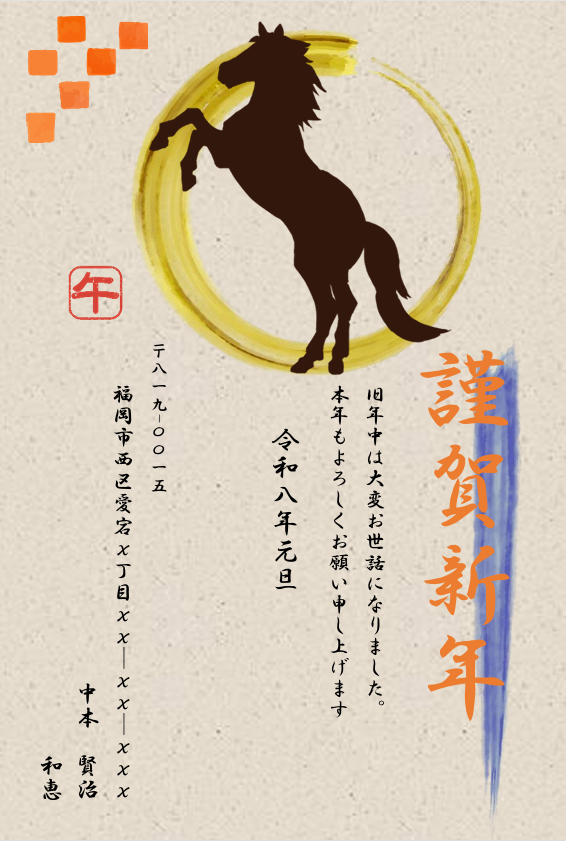 謹賀新年
旧年中は大変お世話になりました。
本年もよろしくお願い申し上げます
令和八年元旦
〒八一九-〇〇一五
福岡市西区愛宕x丁目xx―xx―xxx
中本　賢治
和恵
午